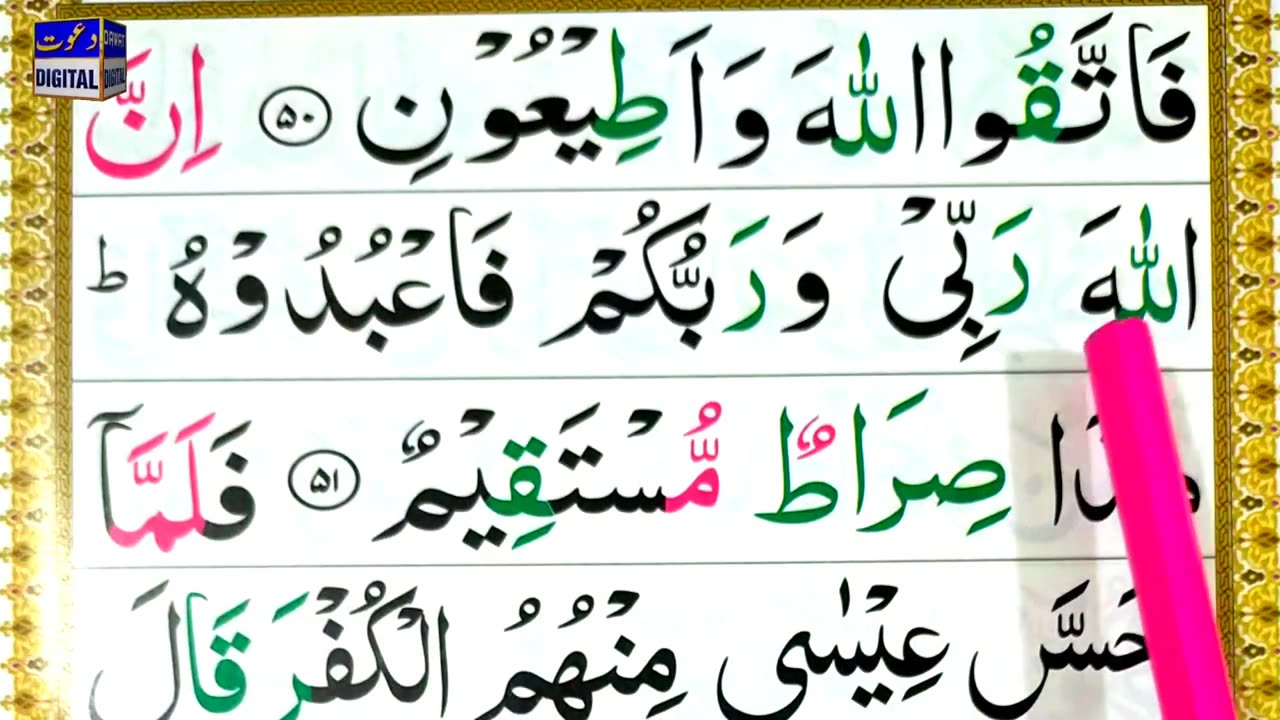 دعوت
DIGITAL
DAWAT
DIGITAL
فَاتَّقُوا اللّٰهَ وَاَطِيْعُوْنِ ﴿۵۰﴾ اِنَّ
اللّٰهَ رَبِّيْ وَرَبُّكُمْ فَاعْبُدُوْهُ ؕ
هٰذَا صِرَاطٌ مُّسْتَقِيْمٌ ﴿۵۱﴾ فَلَمَّآ
حَسَّ عِيْسٰى مِنْهُمُ الْكُفْرَ قَالَ